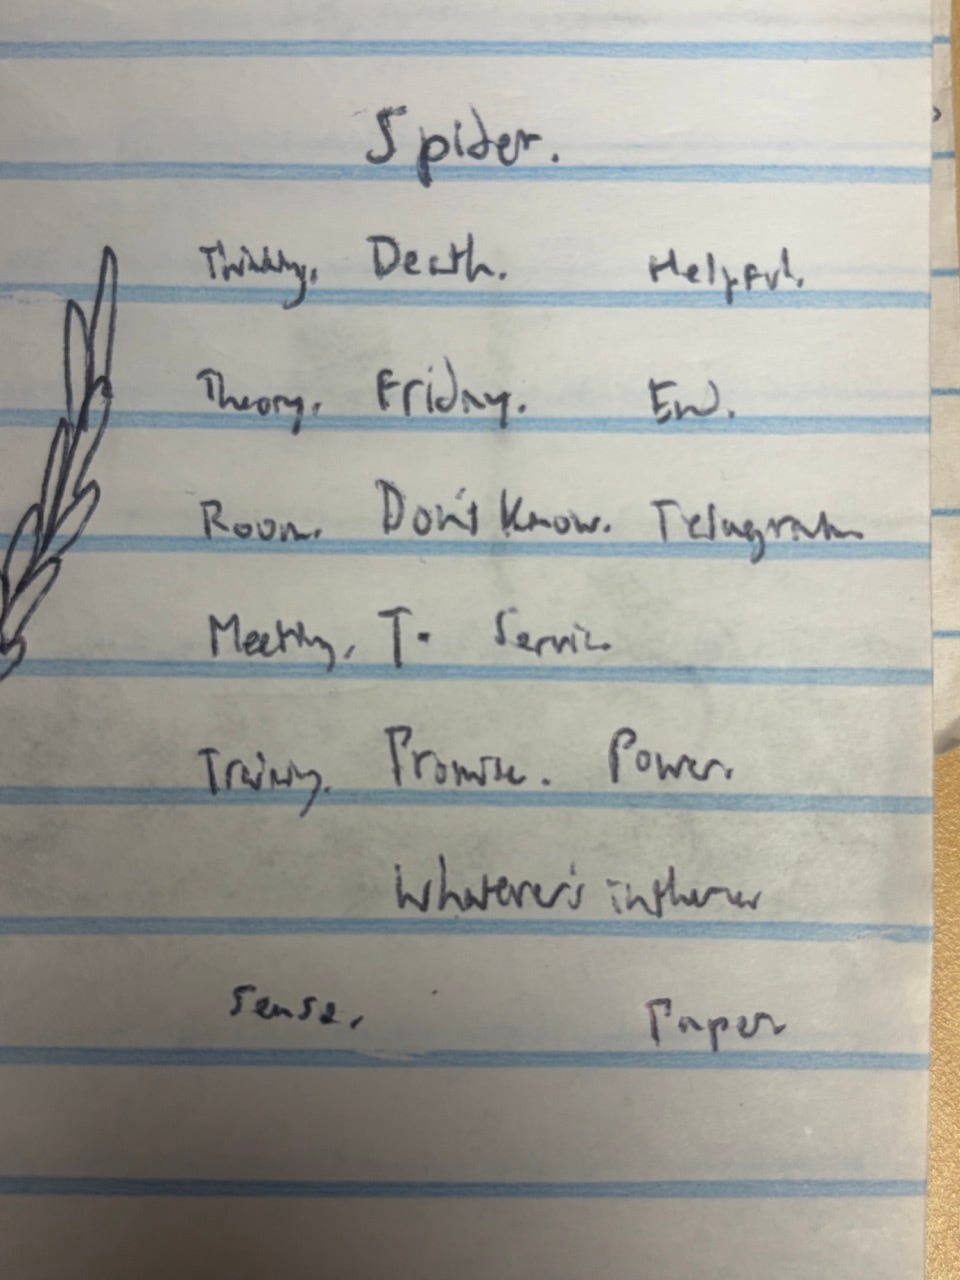 Spider.
Thinking. Death. Helpful.
Theory. Friday. End.
Room. Don't Know. Telegram
Meeting. T. Service
Training. Promise. Power.
Whatever's
Sense. Paper